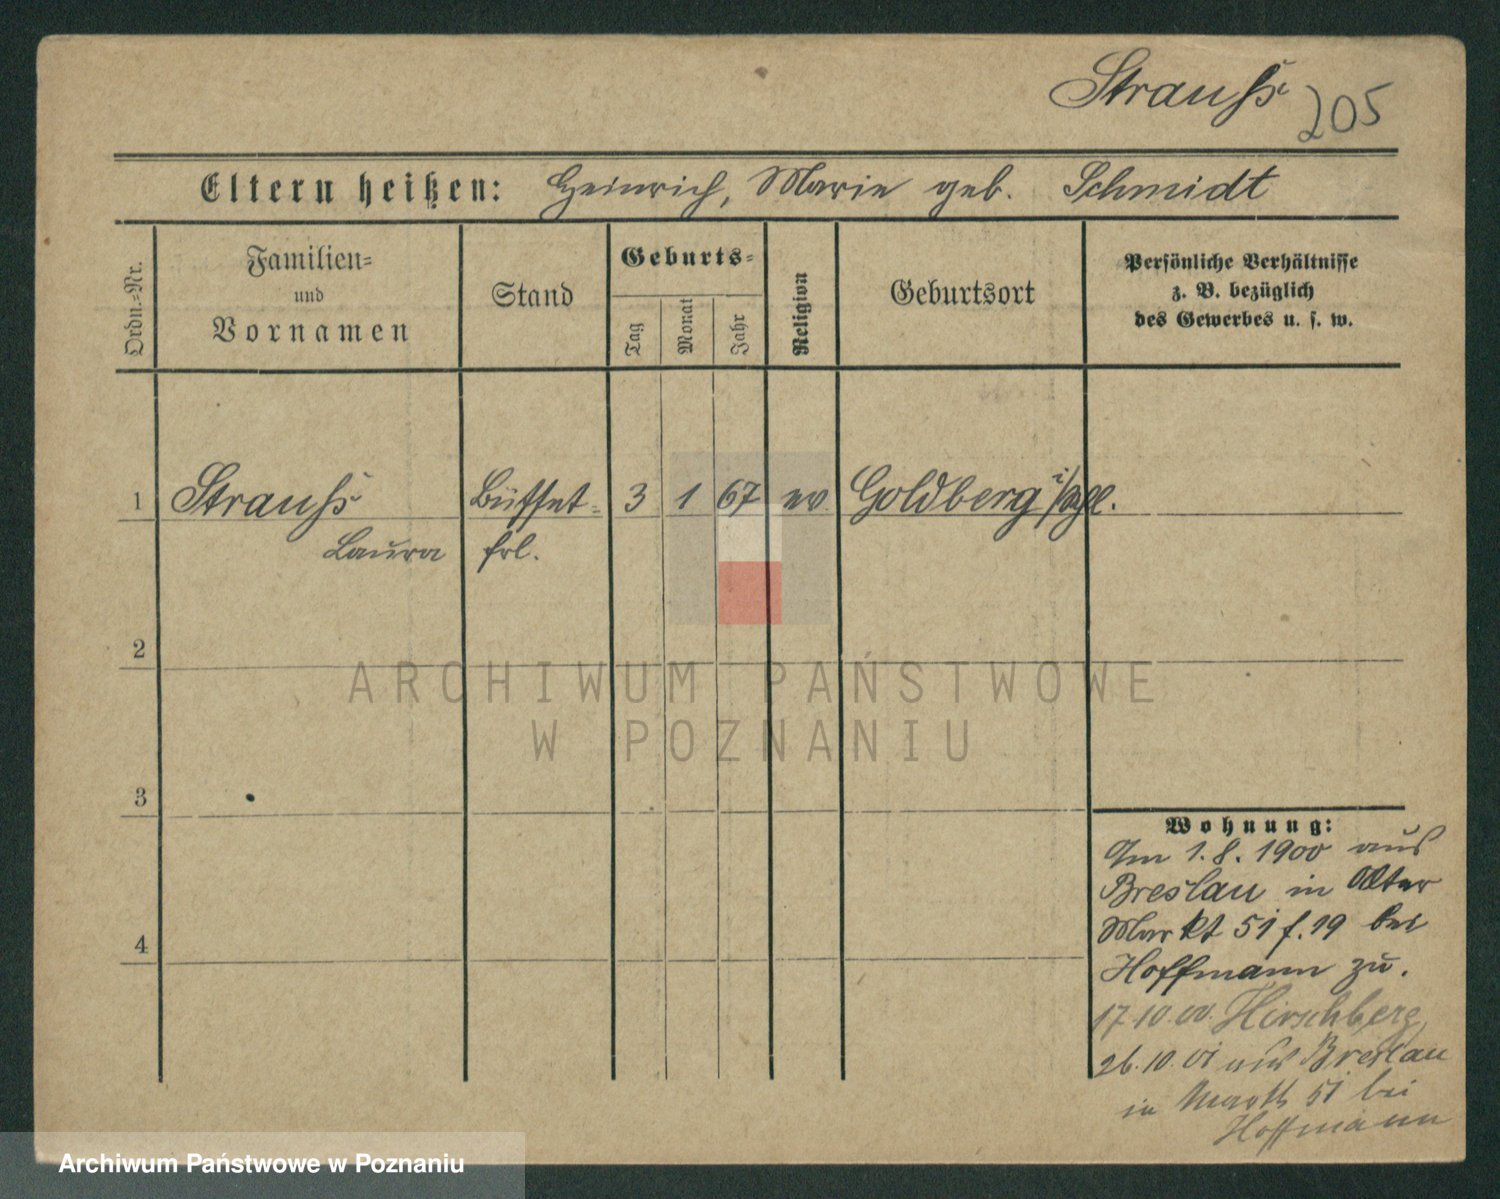 Strauß
205
Eltern heißen: Heinrich, Marie geb. Schmidt
Ordn.-Nr.
Familien-
und
Vornamen
Stand
Geburts-
Tag
Monat
Jahr
Religion
Geburtsort
Persönliche Verhältnisse
z. B. bezüglich
des Gewerbes u. s. w.
1 Strauß Büffet- 3 1 67 ev Goldberg i/Schl.
Laura frl.
2
3
4
ARCHIWUM PAŃSTWOWE
W POZNANIU
Wohnung:
Am 1.8.1900 aus
Breslau in Alter
Markt 51 f. 19 bei
Hoffmann zu.
17.10.00. Hirschberg
26.10.01 aus Breslau
in Markt 51 bei
Hoffmann
Archiwum Państwowe w Poznaniu